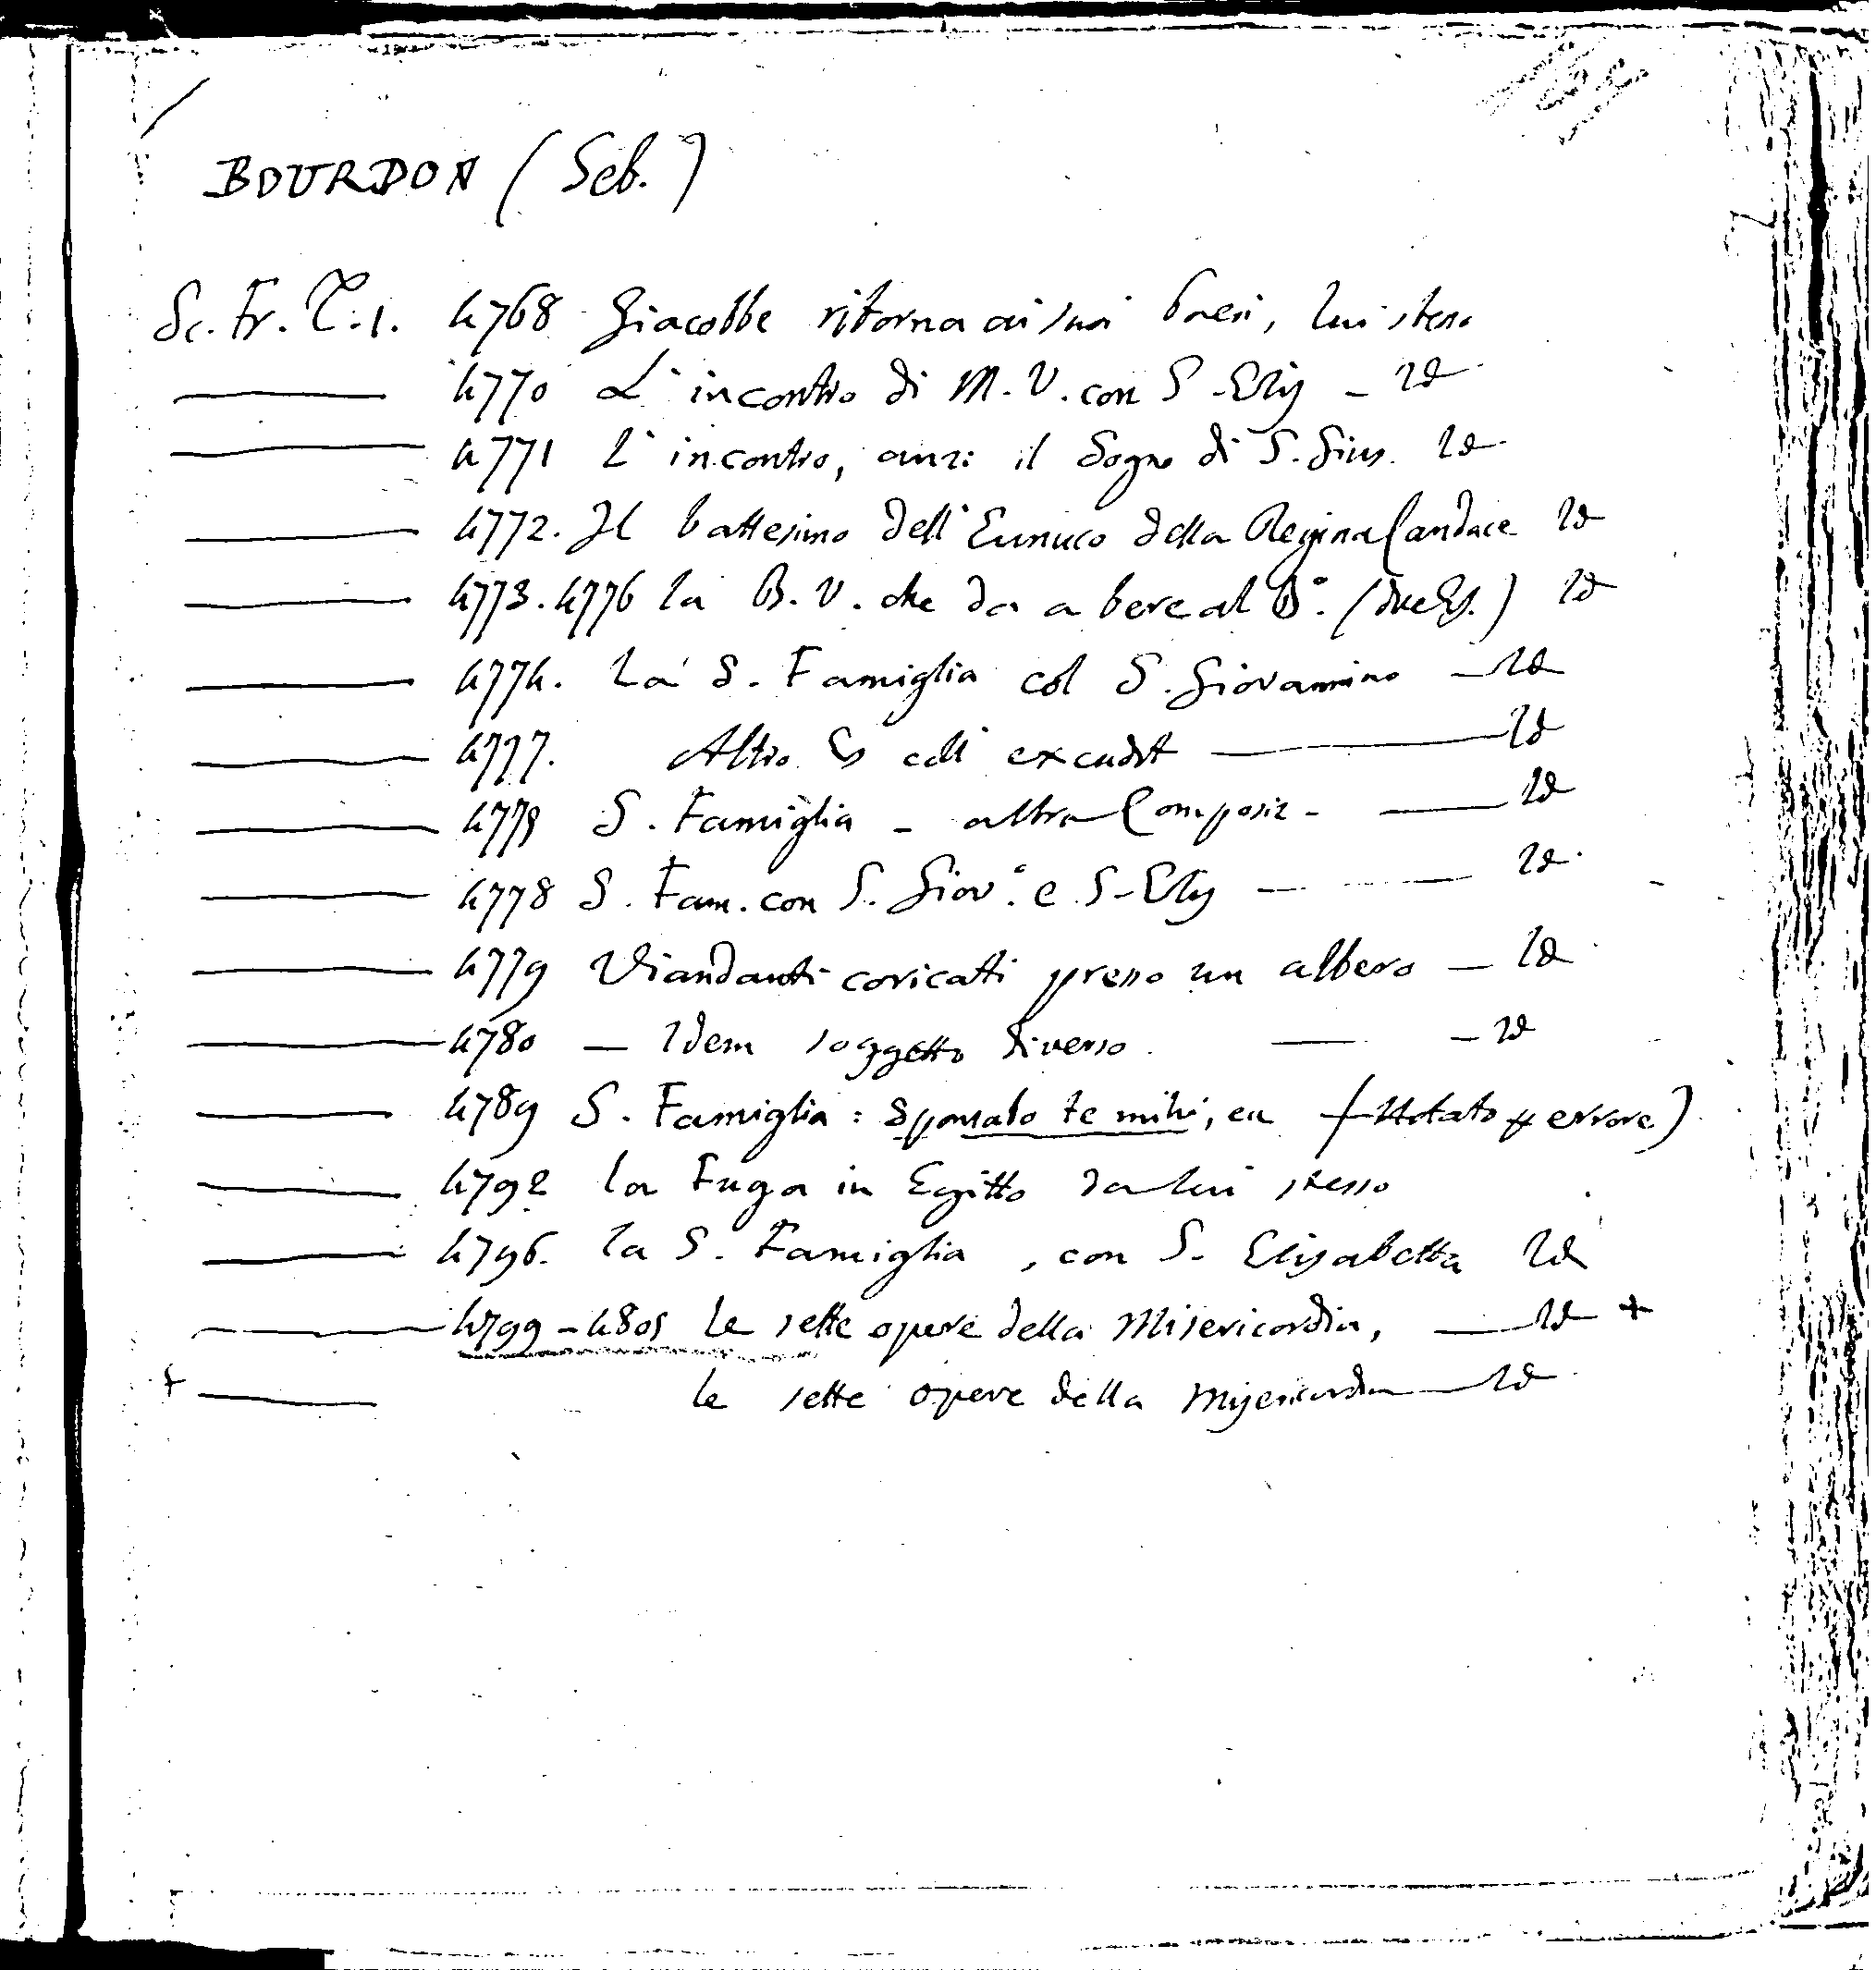 BOURDON (Seb.)
Sc. Fr. T. 1. 4768 Giacobbe ritorna ai suoi Paesi, lui stesso
4770 L'incontro di M. V. con S. Elis - Id
4771 L'incontro, anzi il Sogno di S. Gius. Id
4772. Il battesimo dell'Eunuco della Regina Candace Id
4773. 4776 La B. V. che da a bere al Bo. (due Es.) Id
4774. La S. Famiglia col S. Giovannino - Id
4777. Altro Es coll excudit - Id
4779 S. Famiglia - altra Composiz - Id
4778 S. Fam. con S. Giovo. e S. Elis - Id
4779 Viandanti coricati presso un albero - Id
4780 - Idem soggetto diverso - Id
4789 S. Famiglia: Sponsabo te mihi, (Notato per errore)
4792 La Fuga in Egitto da lui stesso
4796. La S. Famiglia, con S. Elisabetta Id
4799 - 4805 Le sette opere della Misericordia, - Id +
+ le sette opere della Misericordia - Id